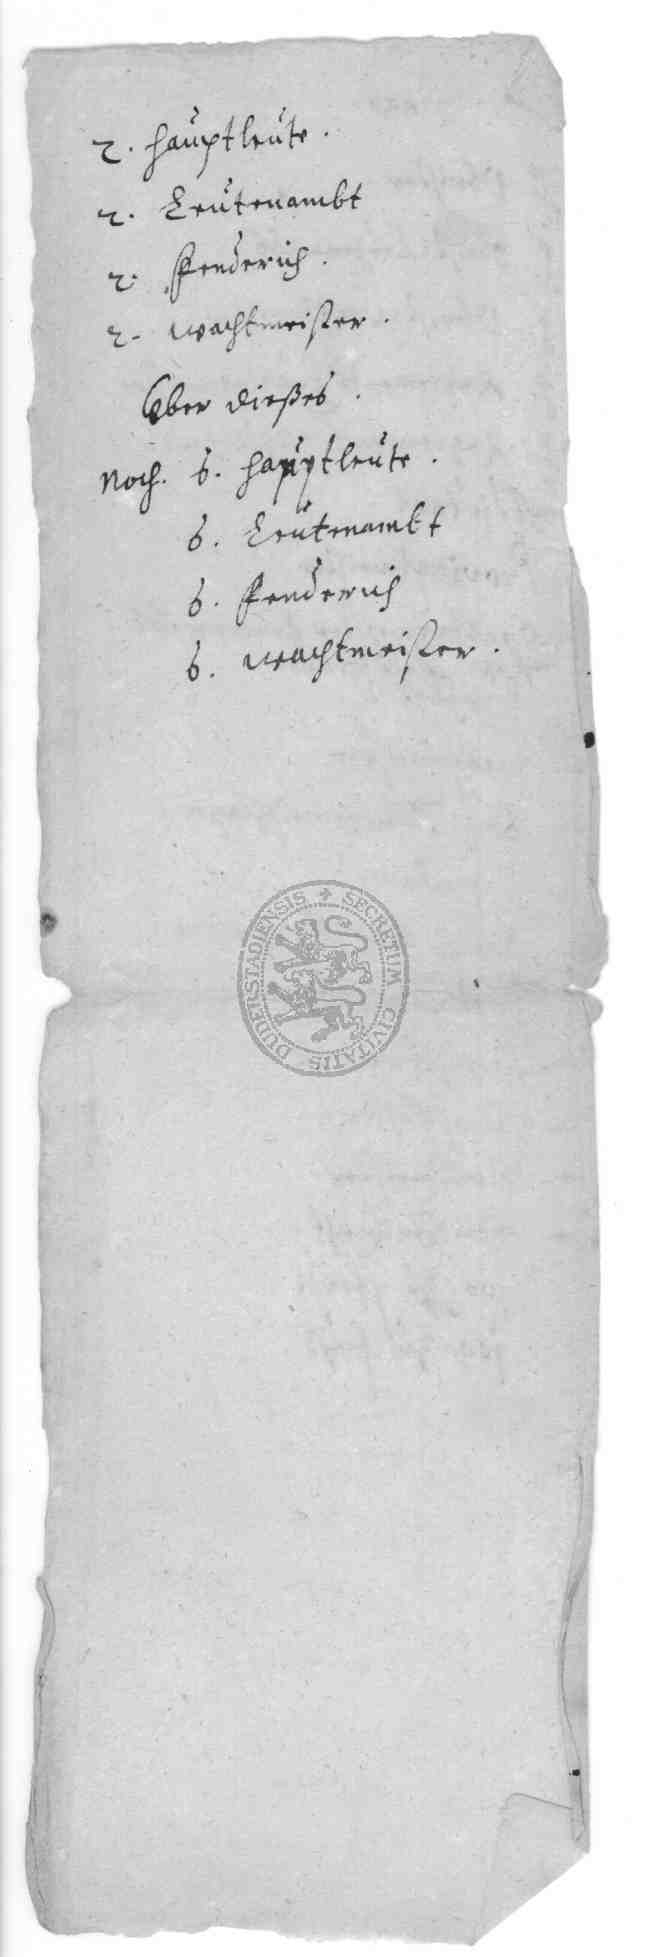 2. Hauptleute.
2. Leutenambt
2. Fenderich.
2. Wachtmeister.
Über dießes.
Noch. 6. Hauptleute.
6. Leutenambt
6. Fenderich
6. Wachtmeister.
SECRETUM CIVITATIS DUDERSTADIENSIS